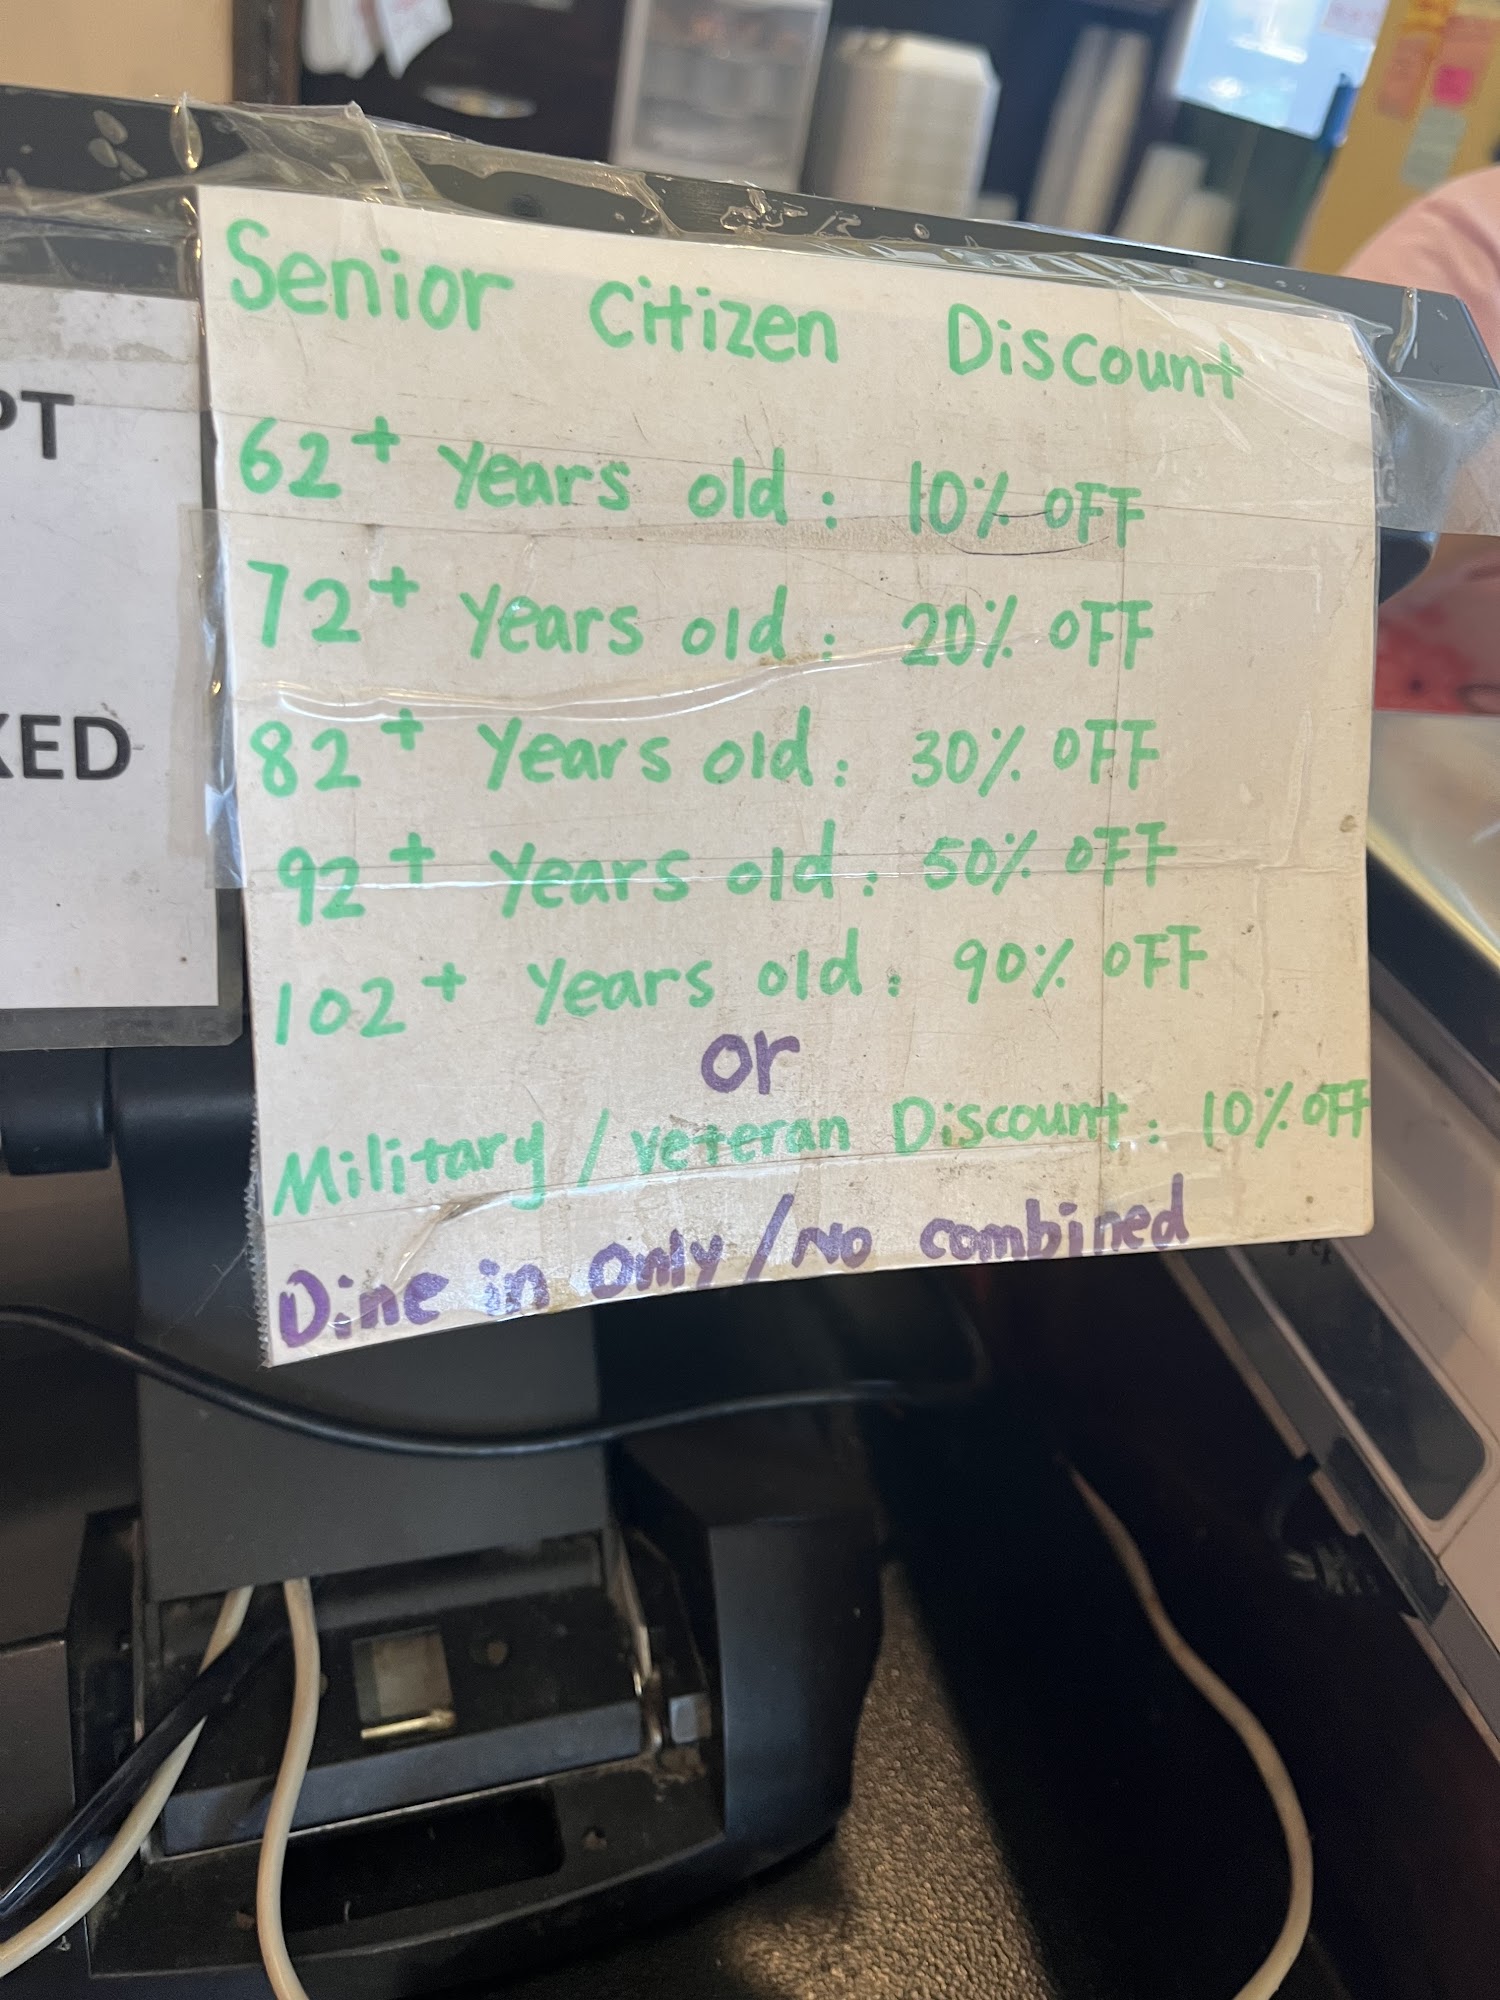 Senior Citizen Discount
62+ years old: 10% OFF
72+ years old: 20% OFF
82+ years old: 30% OFF
92+ years old: 50% OFF
102+ years old: 90% OFF
or
Military / veteran Discount: 10% OFF
Dine in only / No combined
PT
KED